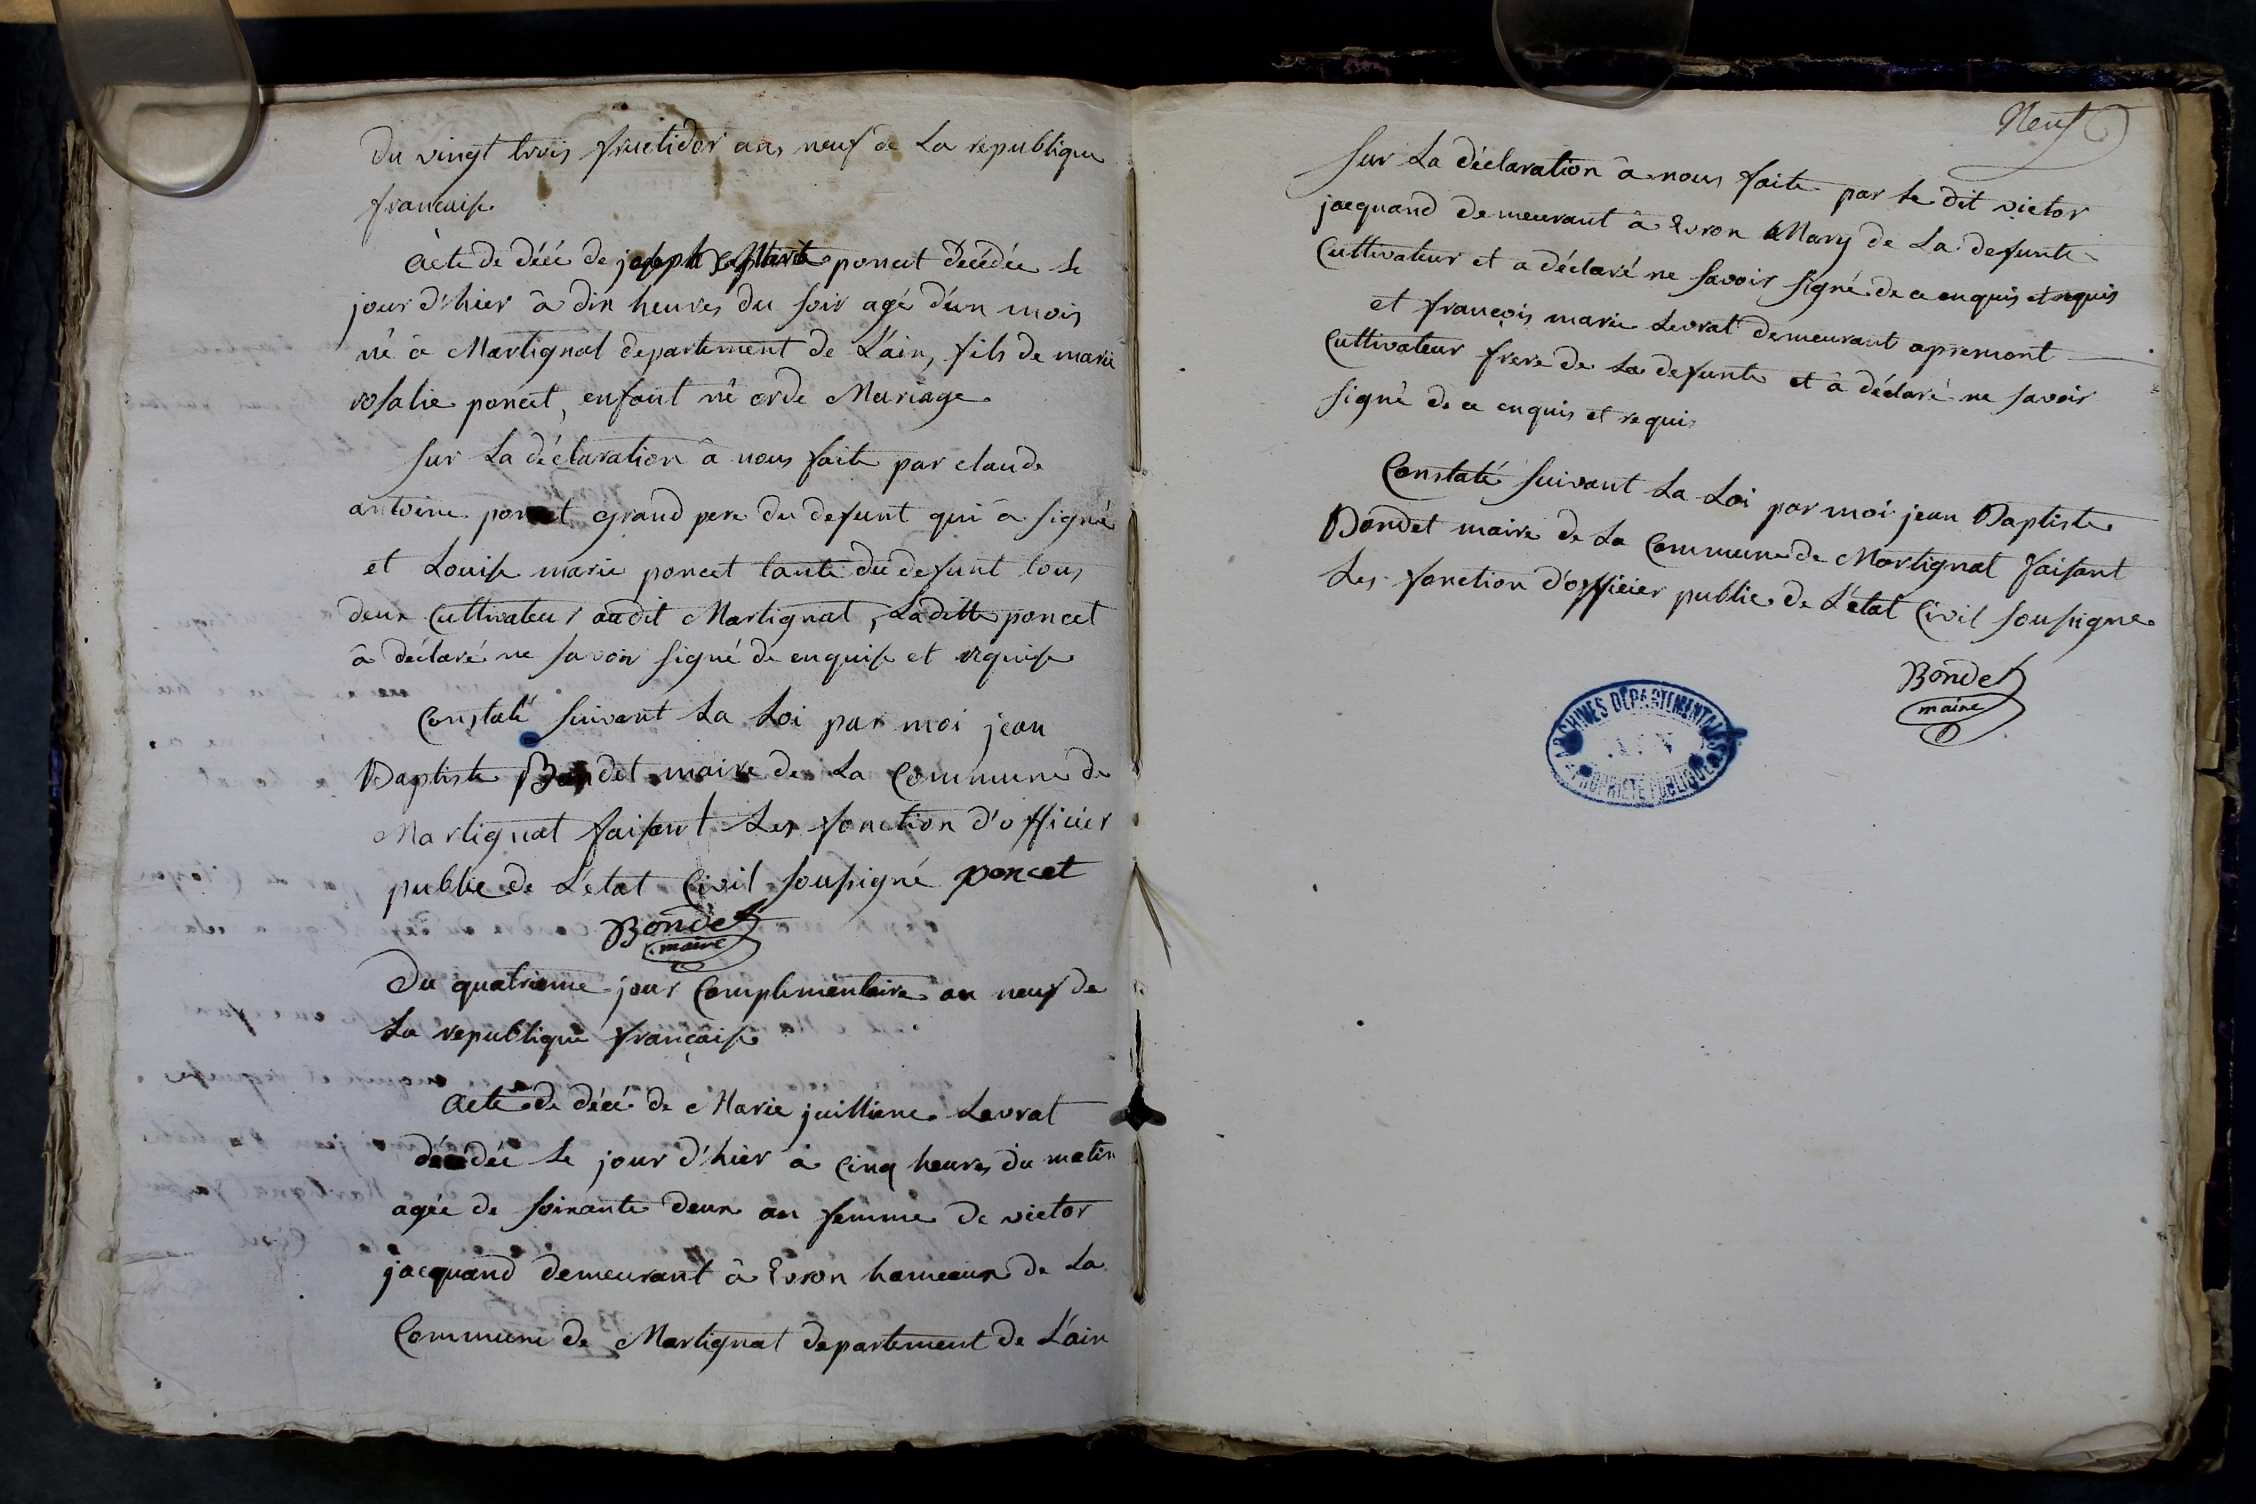 Du vingt trois fructidor ans neuf de La republique
francaise
Acte de décé de joseph poncet Decédée le
jour d'hier â dix heures du soir agé d'un mois
né â Martignat departement de L'ain, fils de marie
rosalie poncet, enfant né orde Mariage
Sur La déclaration â nous faite par claude
antoine poncet grand pere du defunt qui â signé
et Louise marie poncet tante du defunt tous
deux Cultivateur audit Martignat, Laditte poncet
â déclaré ne savoir signé de enquise et requise
Constaté suivant La Loi par moi jean
Baptiste Bondet maire de La Commune de
Martignat faisant Les fonction d'officier
public de L'état Civil soussigné poncet
Bondet
maire
Du quatrieme jour Complimentaire an neuf de
La republique française
Acte de décé de Marie juilliene Levrat
décédée le jour d'hier a Cinq heures du matin
agée de soixante deux an femme de victor
jacquand demeurant â Evron hameaux de La
Commune de Martignat departement de L'ain
Neuf
Sur La déclaration â nous faite par le dit victor
jacquand demeurant â Evron Mary de La defunte
Cultivateur et a déclaré ne savoir signé de ce enquis et requis
et françois marie Levrat demeurant apremont
Cultivateur frere de La defunte et â déclaré ne savoir
signé de ce enquis et requis
Constaté suivant La Loi par moi jean Baptiste
Bondet maire de La Commune de Martignat faisant
Les fonction d'officier public de L'état Civil soussigne
Bondet
maire
ARCHIVES DÉPARTEMENTALES
AIN
PROPRIÉTÉ PUBLIQUE